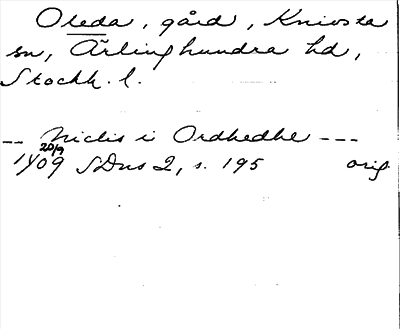 Oreda, gård, Knivsta
sn, Ärlinghundra hd,
Stockh. l.
-- Niclis i Ordhedhe ---
1409 20/9 SDns 2, s. 195 orig